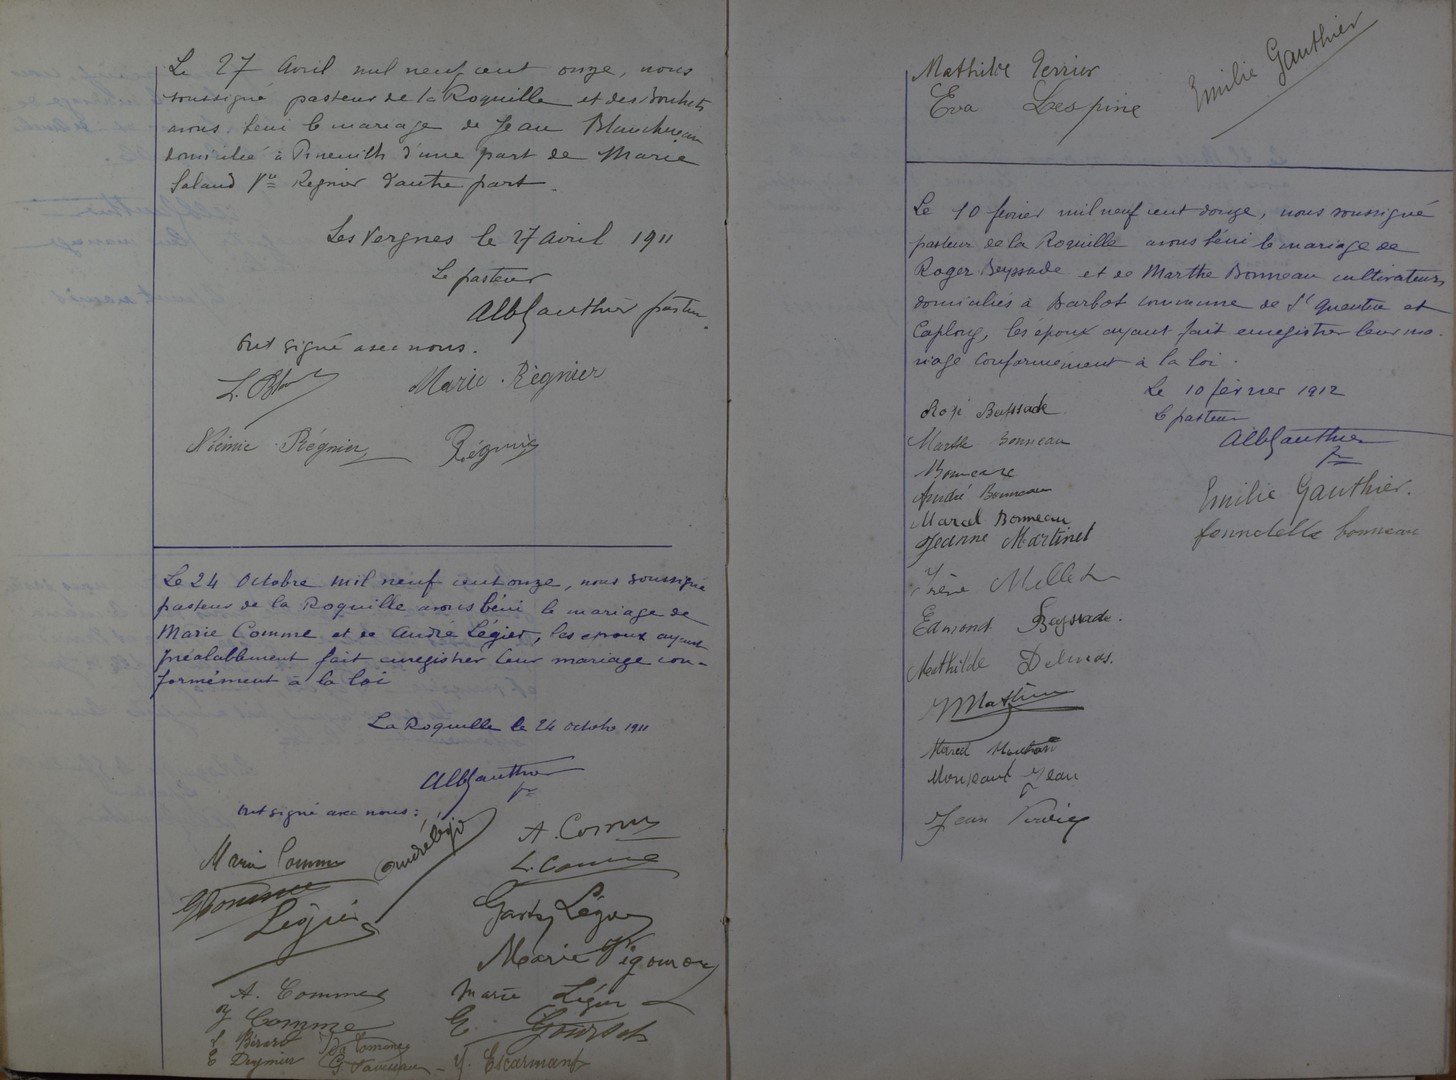 Le 27 Avril mil neuf cent onze, nous
soussigné pasteur de la Roquille et des Bouhets
avons béni le mariage de Jean
domicilié à Pineuilh d'une part de Marie
Salaud Vve Regnier d'autre part.
Les Vergnes le 27 Avril 1911
Le pasteur
Alb Gauthier pasteur
Ont signé avec nous.
Marie Régnier
Régnier
Régnier
Le 24 Octobre mil neuf cent onze, nous soussigné
pasteur de la Roquille avons béni le mariage de
Marie Comme et de André Légier, les époux ayant
préalablement fait enregistrer leur mariage con-
formément à la loi
La Roquille le 24 octobre 1911
Alb Gauthier
Ont signé avec nous:
Maria Comme
A. Comme
L. Comme
Légier
Marie Vigouroux
A. Comme
Marie Légier
Comme
E.
E
Escarmant
Mathilde Perrier
Emilie Gauthier
Eva Lespine
Le 10 février mil neuf cent douze, nous soussigné
pasteur de la Roquille avons béni le mariage de
Roger Beyssade et de Marthe Bonneau cultivateurs
domiciliés à Barbot commune de St Quentin et
Caplong, les époux ayant fait enregistrer leur ma-
riage conformément à la loi.
Le 10 février 1912
Le pasteur
Alb Gauthier
Marthe Bonneau
André Bonneau
Emilie Gauthier.
Marcel Bonneau
Jeanne Martinet
Bonneau
Irène Millet
Edmond Beyssade.
Mathilde Delmas.
Marcel
Jean
Jean